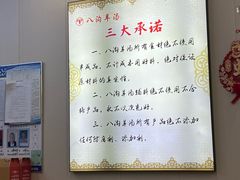 八沟羊汤
三大承诺
一、八沟羊汤所有食材绝不使用
半成品，不计成本用好料，绝对保证
原材料的真宗性。
二、八沟羊汤辅料绝不使用不合
格产品，永不以次充好。
三、八沟羊汤所有产品绝不添加
任何防腐剂、添加剂。